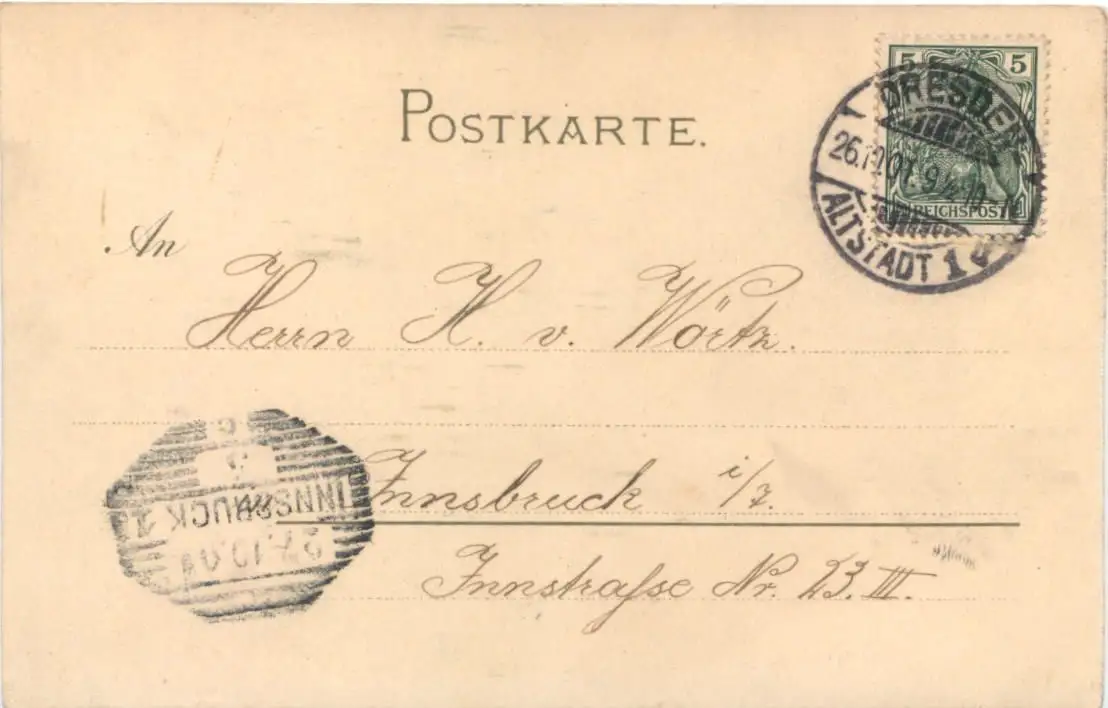 POSTKARTE.
5 5
REICHSPOST
DRESDEN
26.10.01. 9-10
ALTSTADT 1
An
Herrn H. v. Wörtz.
Innsbruck i/T.
Innstraſse Nr. 23. III.
INNSBRUCK 1
27.10.01